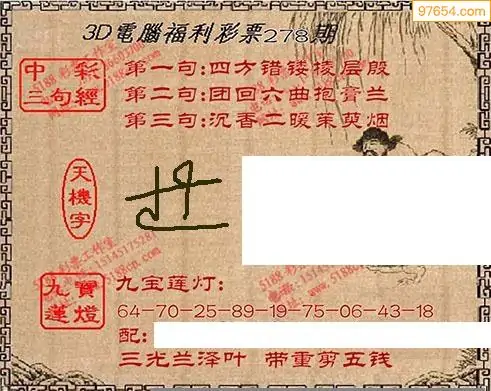 97654.com
3D電腦福利彩票278期
中彩三句經
第一句:四方错镂棱层殷
第二句:团回六曲抱膏兰
第三句:沉香二暖茱萸烟
天機字
九寶蓮燈
九宝莲灯:
64-70-25-89-19-75-06-43-18
配:
三光兰泽叶 带重剪五钱